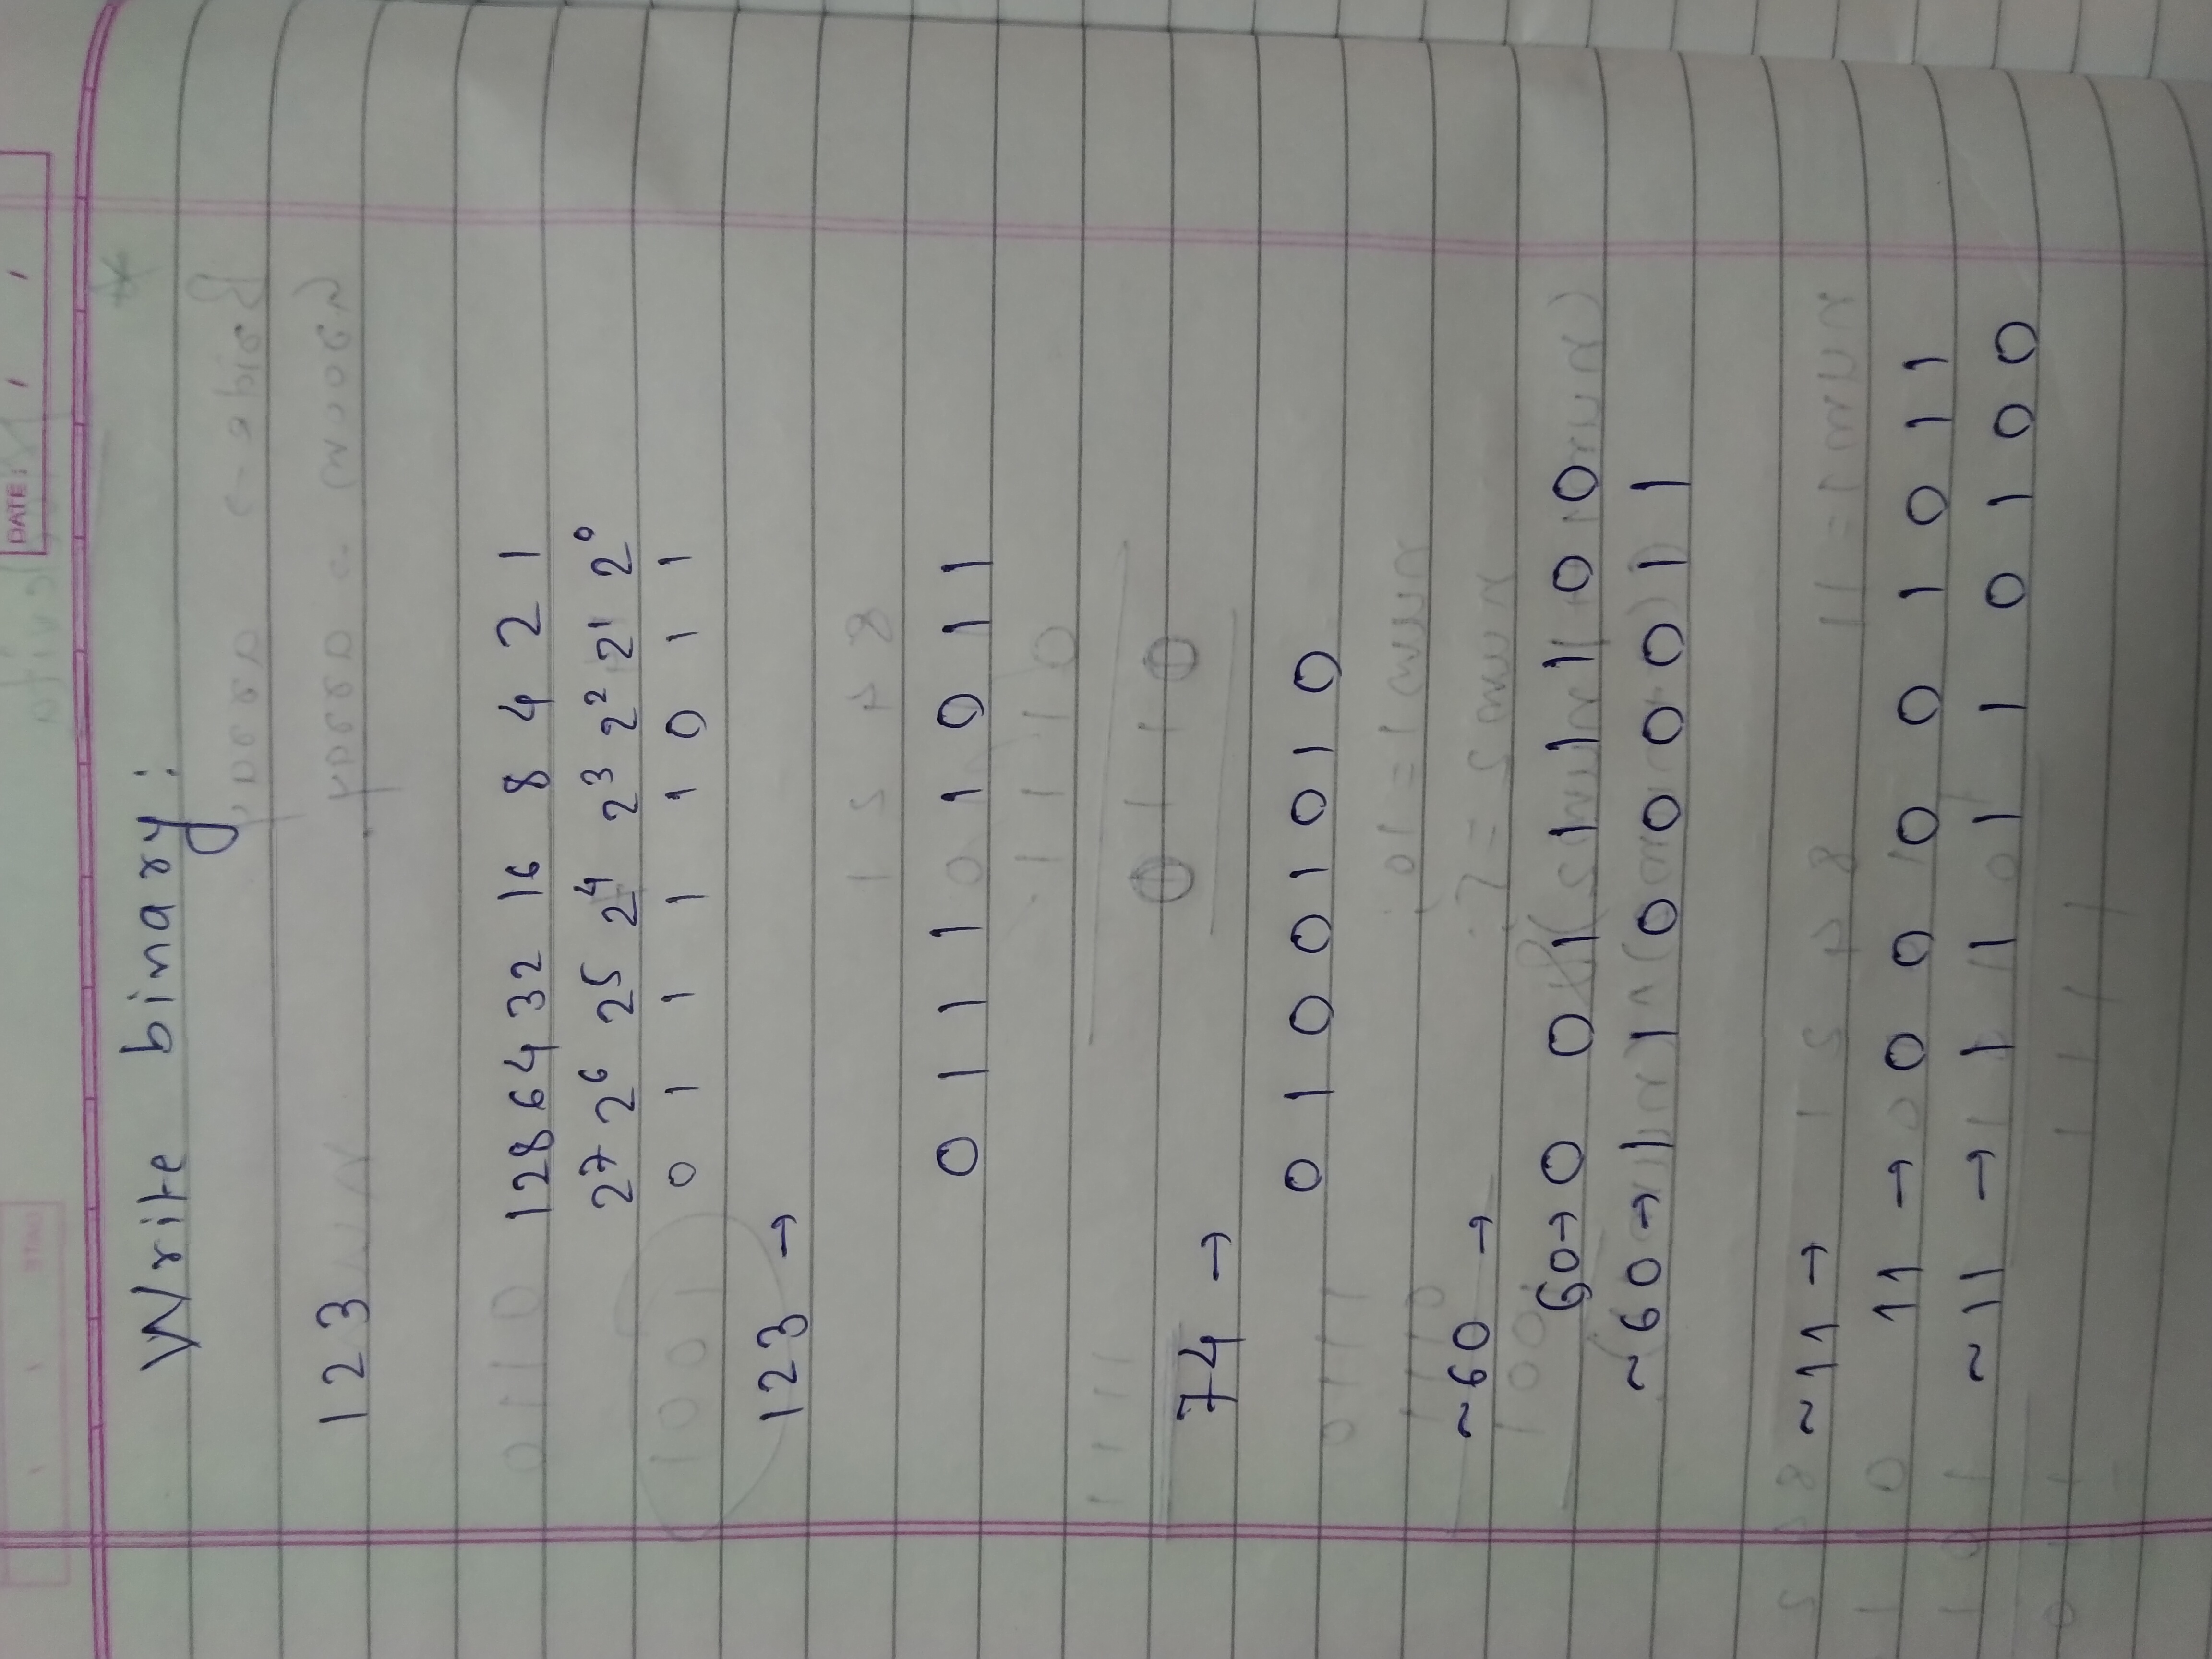 DATE: / /
Write binary:
123
128 64 32 16 8 4 2 1
2⁷ 2⁶ 2⁵ 2⁴ 2³ 2² 2¹ 2⁰
0 1 1 1 1 0 1 1
123 →
0 1 1 1 1 0 1 1
74 →
0 1 0 0 1 0 1 0
~60 →
60→ 0 0 1 1 1 1 0 0
~60→ 1 1 0 0 0 0 1 1
~11 →
11 → 0 0 0 0 1 0 1 1
~11 → 1 1 1 1 0 1 0 0